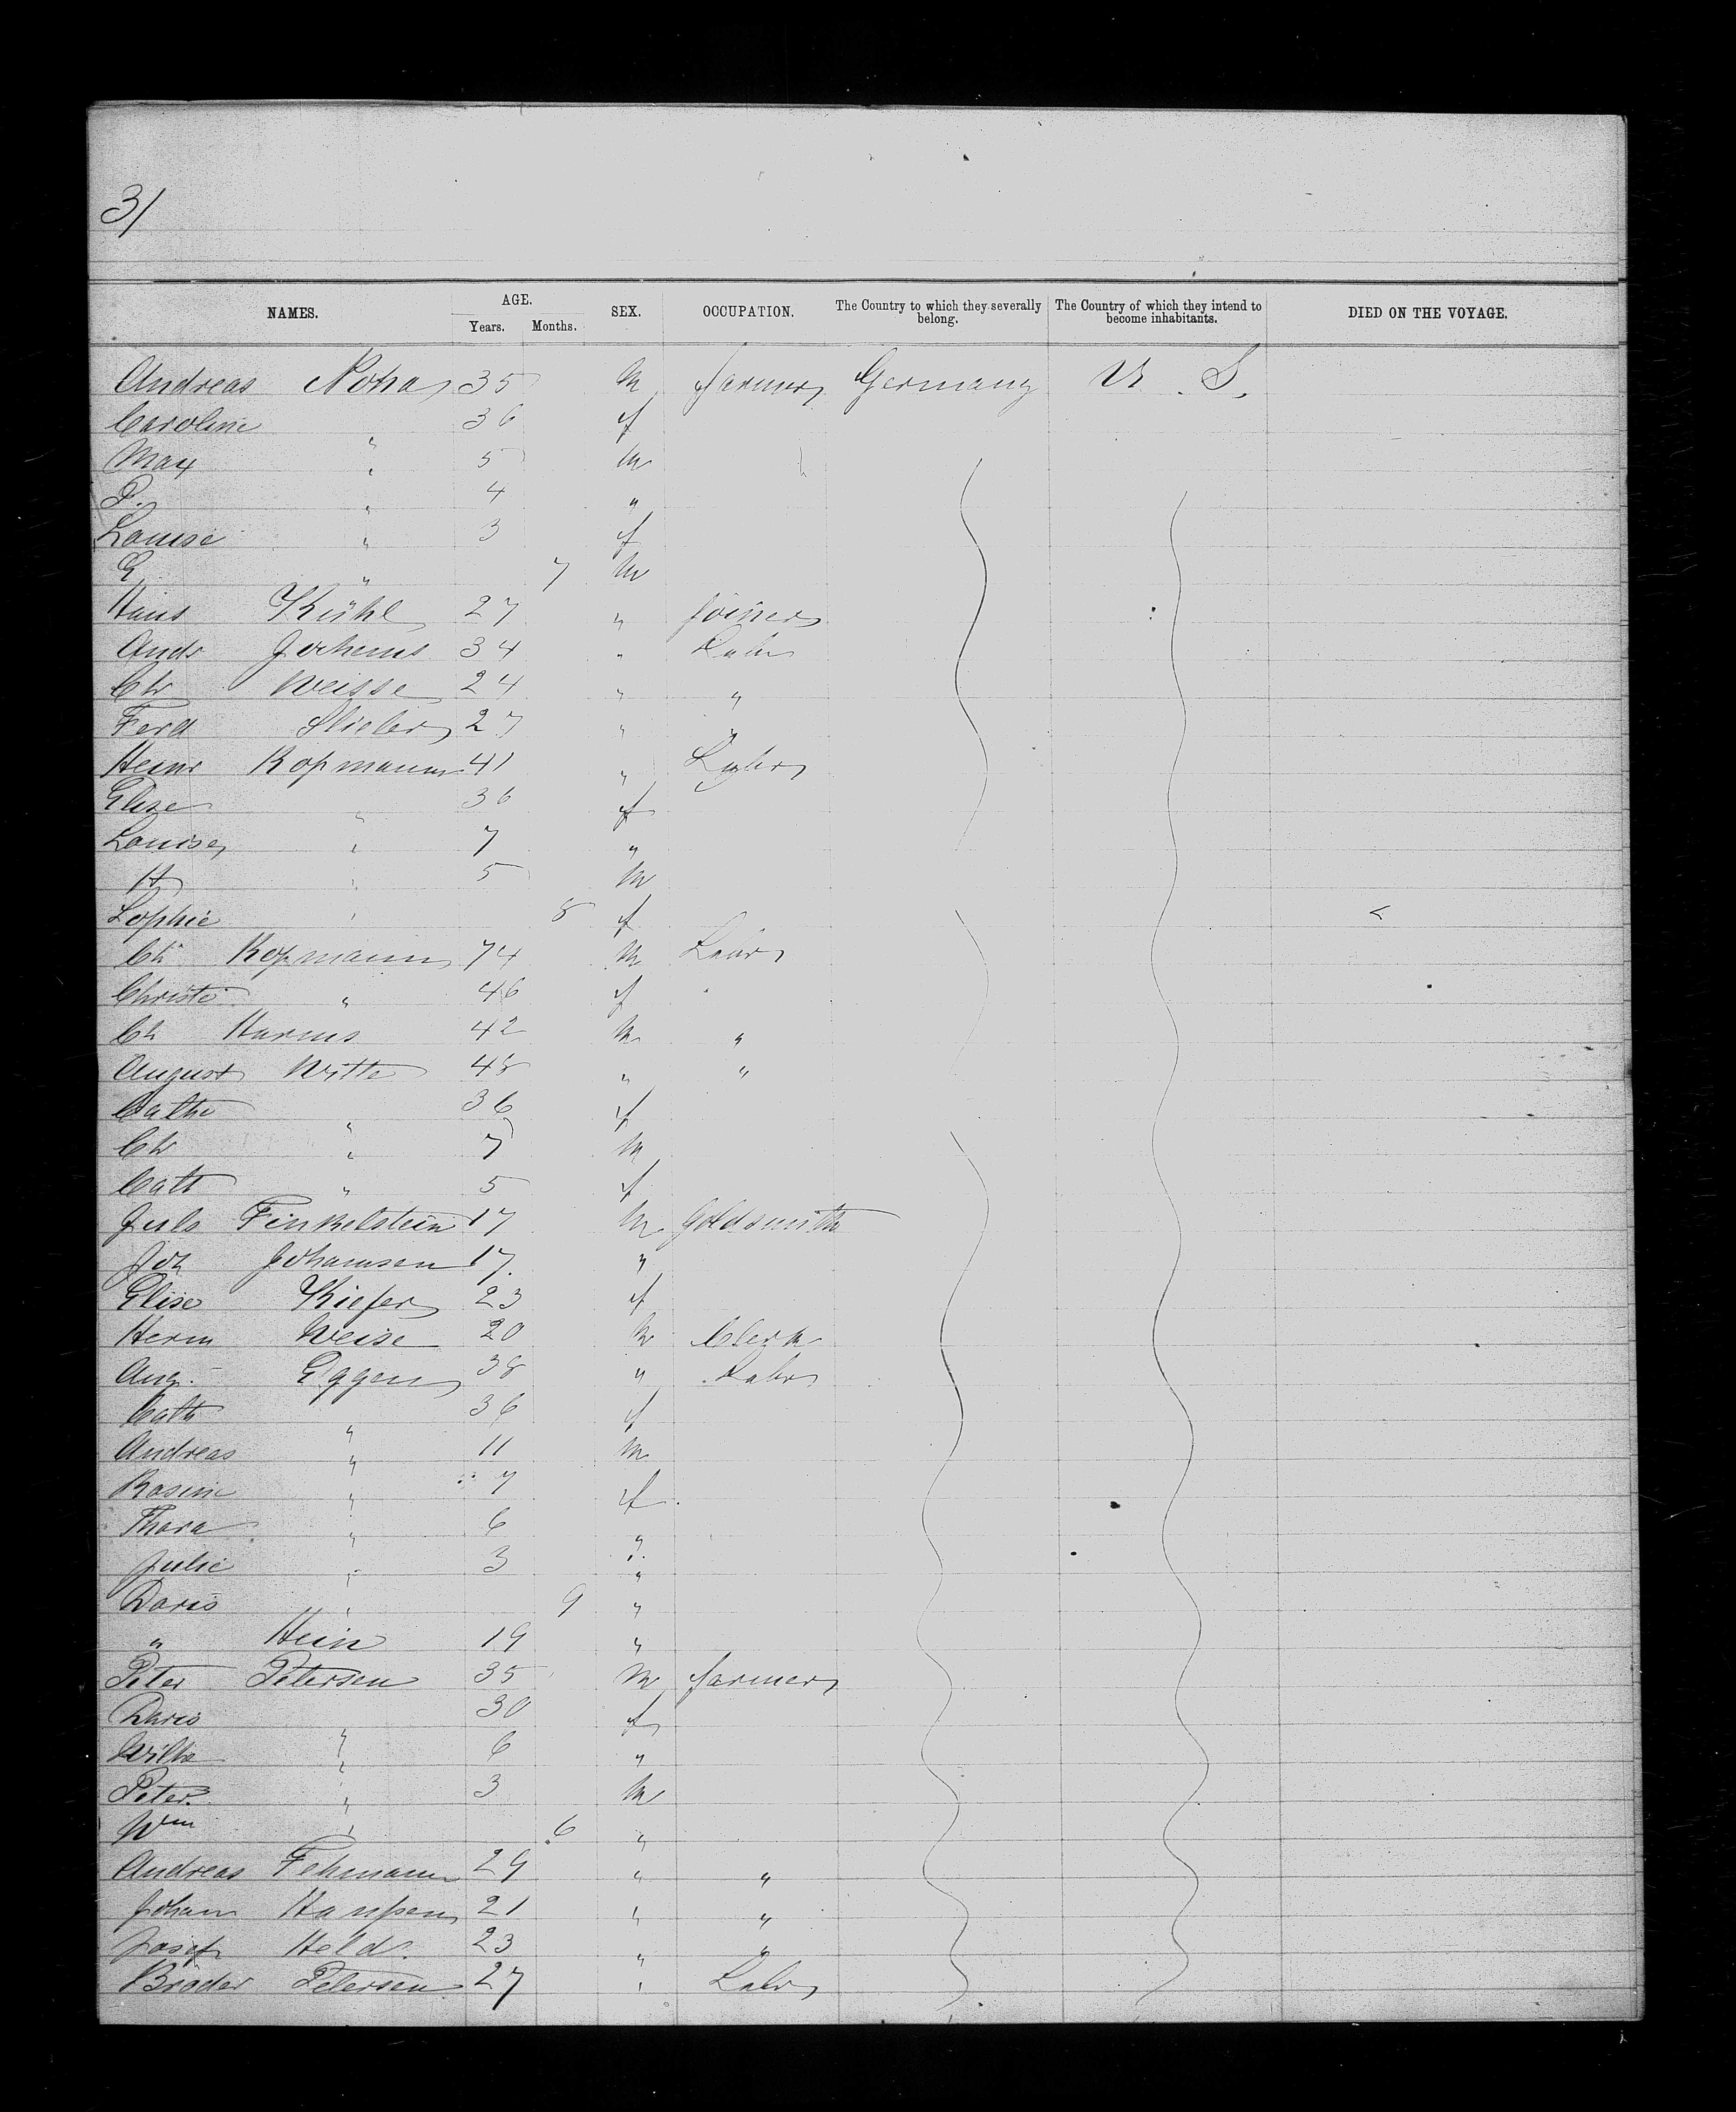 31
NAMES. AGE. Years. Months. SEX. OCCUPATION. The Country to which they severally belong. The Country of which they intend to become inhabitants. DIED ON THE VOYAGE.
Andreas Noha 35 m farmer Germany U. S.
Caroline " 36 f
Max " 5 m
P. " 4 "
Louise " 3 f
G " 7 m
Hans Kühl 27 " joiner
Andr Jochems 34 " Labr
Chr Weisse 24 " "
Ferd Stieler 27 " "
Heinr Kopmann 41 " Labr
Elise " 36 f
Louise " 7 "
H " 5 m
Sophie " 8 f
Ch Kopmann 74 m Labr
Christe " 46 f
Ch Harms 42 m "
August Witte 48 " "
Cathe " 36 f
Chr " 7 m
Cath " 5 f
Juls Finkelstein 17 m Goldsmith
Joh Johannsen 17. "
Elise Kiefer 23 f
Herm Weise 20 m Clerk
Aug. Eggen 38 " Labr
Cath " 36 f
Andreas " 11 m
Rosine " 7 f
Thora " 6 "
Julie " 3 "
Doris " 9 "
" Hein 19 "
Peter Petersen 35 m farmer
Doris " 30 f
Wilhe " 6 "
Peter " 3 m
Wm " 6 "
Andreas Fehmann 29 " "
Johann Hanssen 21 " "
Josef Held 23 " "
Broder Petersen 27 " Labr